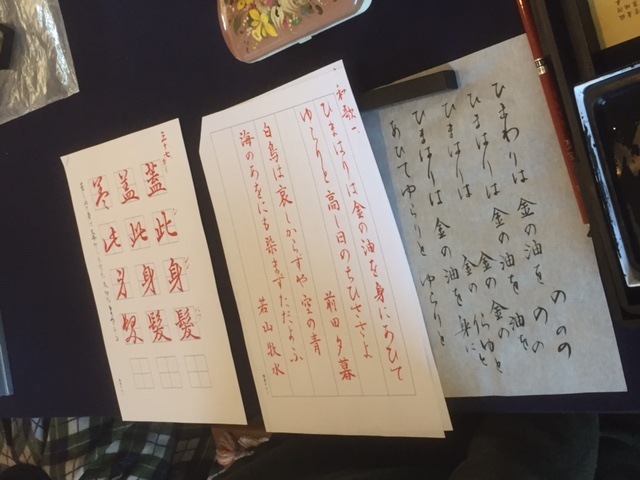 ひまわりは 金の油を ののの
ひまはりは 金の油を
ひまはりは 金の
ひまはりは 金の油を 身に
あびてゆらりと ゆらりと
和歌一
ひまはりは金の油を身にあびて
ゆらりと高し日のちひささよ
前田夕暮
白鳥は哀しからずや空の青
海のあをにも染まずただよふ
若山牧水
三十七
蓋此身髪
蓋此身髪
蓋此身髪